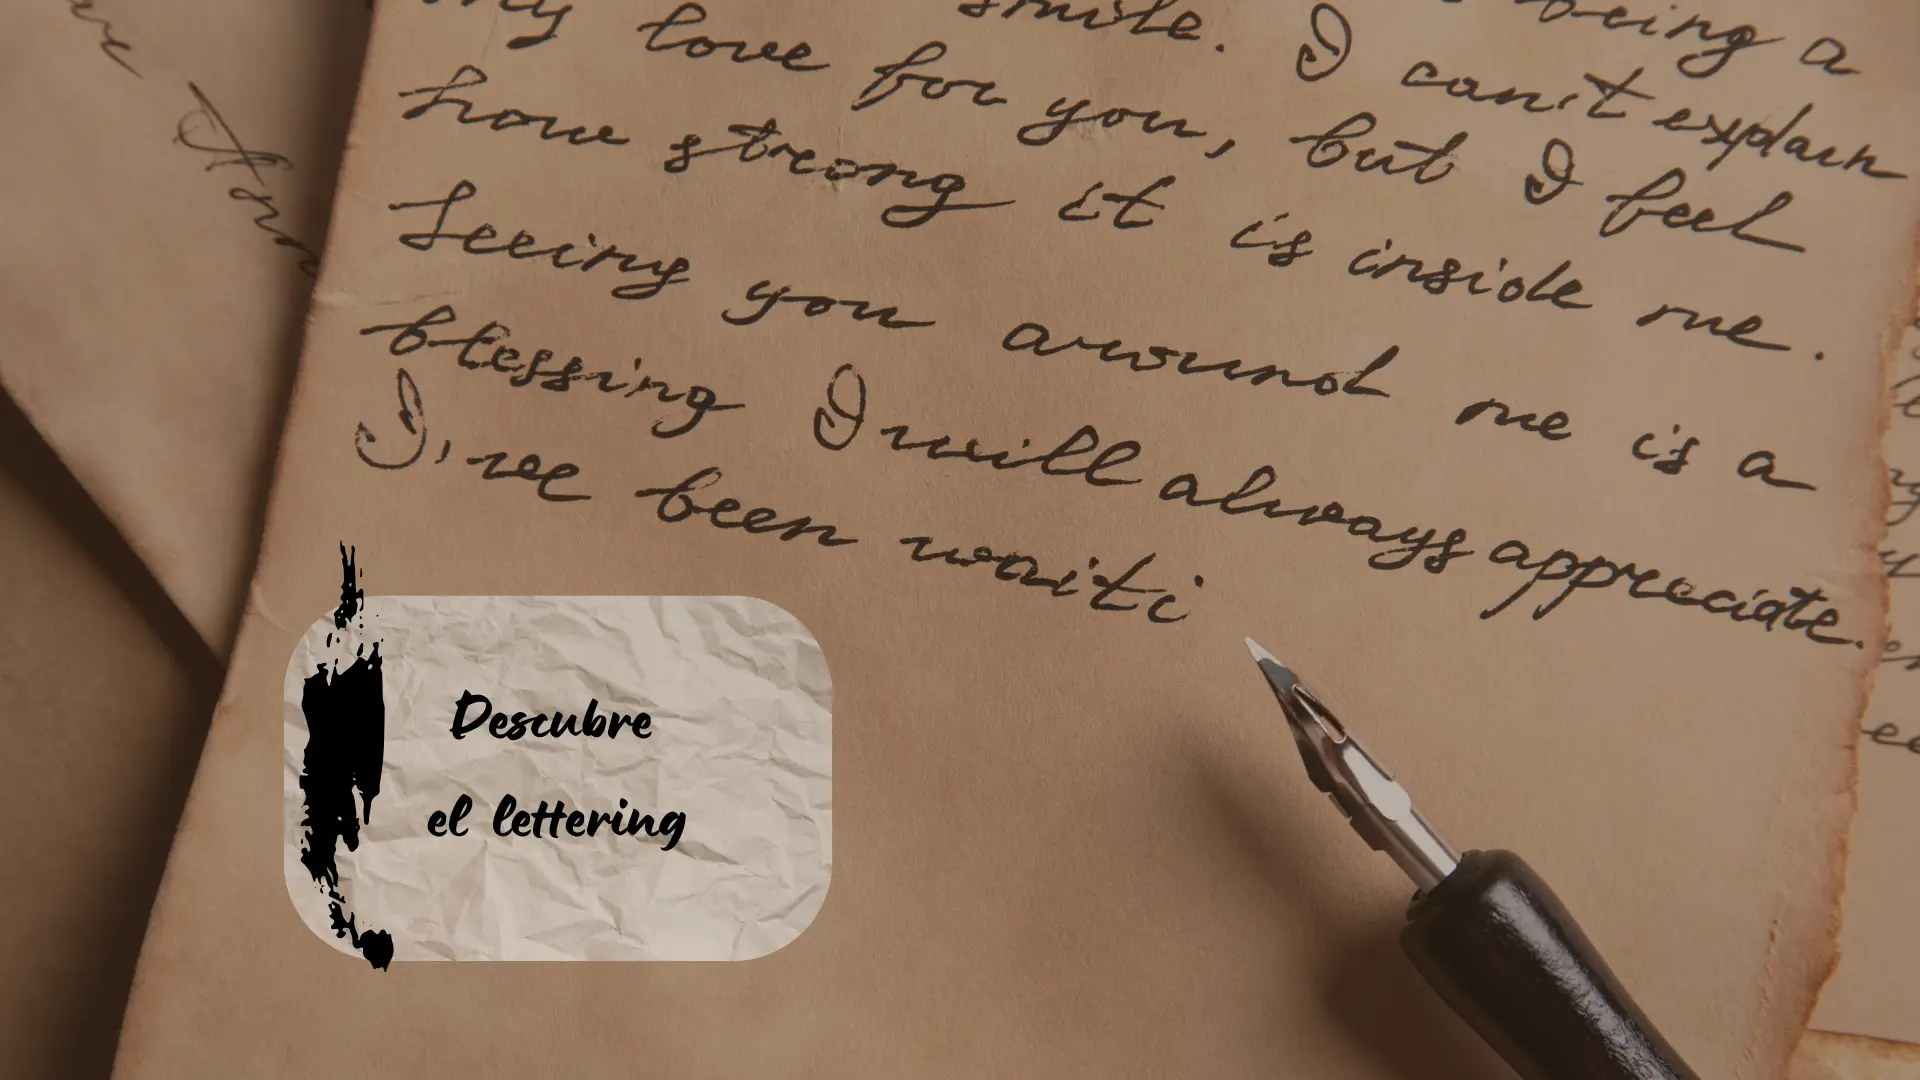 being a
smile. I can't explain
my love for you, but I feel
how strong it is inside me.
Seeing you around me is a
blessing I will always appreciate.
I've been waiti
Descubre
el lettering